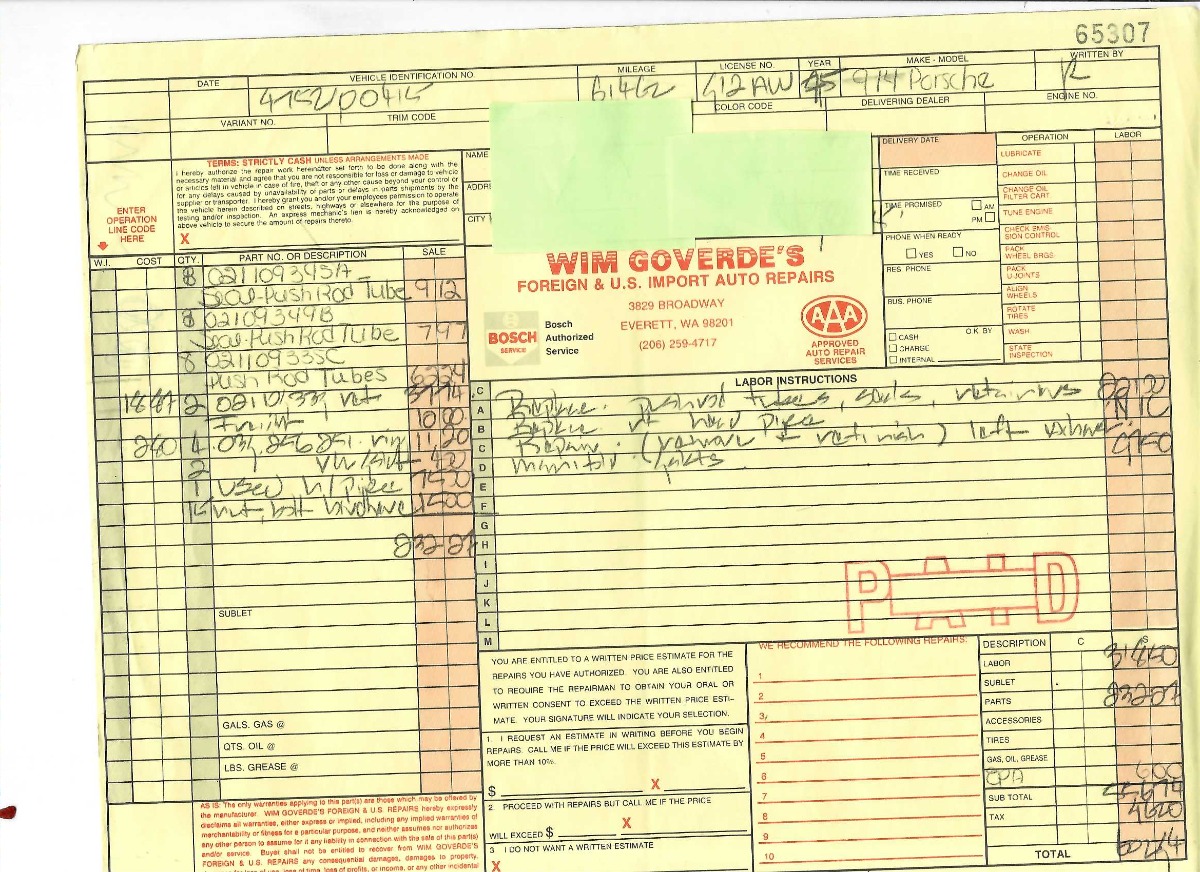 65307
DATE
VEHICLE IDENTIFICATION NO.
MILEAGE
LICENSE NO.
YEAR
MAKE - MODEL
WRITTEN BY
61462
612 AW
914 Porsche
VARIANT NO.
TRIM CODE
COLOR CODE
DELIVERING DEALER
ENGINE NO.
TERMS: STRICTLY CASH UNLESS ARRANGEMENTS MADE
I hereby authorize the repair work hereinafter set forth to be done along with the
necessary material and agree that you are not responsible for loss or damage to vehicle
or articles left in vehicle in case of fire, theft or any other cause beyond your control or
for any delays caused by unavailability of parts or delays in parts shipments by the
supplier or transporter. I hereby grant you and/or your employees permission to operate
the vehicle herein described on streets, highways or elsewhere for the purpose of
testing and/or inspection. An express mechanic's lien is hereby acknowledged on
above vehicle to secure the amount of repairs thereto.
X
ENTER
OPERATION
LINE CODE
HERE
NAME
ADDRE
CITY
DELIVERY DATE
TIME RECEIVED
TIME PROMISED
AM
PM
PHONE WHEN READY
YES
NO
RES. PHONE
BUS. PHONE
CASH
O.K BY
CHARGE
INTERNAL
OPERATION
LABOR
LUBRICATE
CHANGE OIL
CHANGE OIL
FILTER CART.
TUNE ENGINE
CHECK EMIS-
SION CONTROL
PACK
WHEEL BRGS.
PACK
U-JOINTS
ALIGN
WHEELS
ROTATE
TIRES
WASH
STATE
INSPECTION
WIM GOVERDE'S
FOREIGN & U.S. IMPORT AUTO REPAIRS
3829 BROADWAY
EVERETT, WA 98201
(206) 259-4717
BOSCH
SERVICE
Bosch
Authorized
Service
AAA
APPROVED
AUTO REPAIR
SERVICES
W.I.
COST
QTY.
PART NO. OR DESCRIPTION
SALE
8 021109345A
Seal-Push Rod Tube 9 12
8 021109349B
Seal-Push Rod Tube 7 97
8 021109335C
Push Rod Tubes
10 00
4 11,20
2
1 used 75 00
15 00
232-27
SUBLET
GALS. GAS @
QTS. OIL @
LBS. GREASE @
LABOR INSTRUCTIONS
C
A
B
C
D
E
F
G
H
I
J
K
L
M
Replace pushrod tubes, seals, retainers
N/C
left
99 50
PAID
YOU ARE ENTITLED TO A WRITTEN PRICE ESTIMATE FOR THE
REPAIRS YOU HAVE AUTHORIZED. YOU ARE ALSO ENTITLED
TO REQUIRE THE REPAIRMAN TO OBTAIN YOUR ORAL OR
WRITTEN CONSENT TO EXCEED THE WRITTEN PRICE ESTI-
MATE. YOUR SIGNATURE WILL INDICATE YOUR SELECTION.
1. I REQUEST AN ESTIMATE IN WRITING BEFORE YOU BEGIN
REPAIRS. CALL ME IF THE PRICE WILL EXCEED THIS ESTIMATE BY
MORE THAN 10%.
$ X
2 PROCEED WITH REPAIRS BUT CALL ME IF THE PRICE
X
WILL EXCEED $
3 I DO NOT WANT A WRITTEN ESTIMATE
X
WE RECOMMEND THE FOLLOWING REPAIRS:
1
2
3
4
5
6
7
8
9
10
DESCRIPTION C S
LABOR 318 50
SUBLET
PARTS 232 27
ACCESSORIES
TIRES
GAS, OIL, GREASE
EPA 6 00
SUB TOTAL
TAX
TOTAL
AS IS: The only warranties applying to this part(s) are those which may be offered by
the manufacturer. WIM GOVERDE'S FOREIGN & U.S. REPAIRS hereby expressly
disclaims all warranties, either express or implied, including any implied warranties of
merchantability or fitness for a particular purpose, and neither assumes nor authorizes
any other person to assume for it any liability in connection with the sale of this part(s)
and/or service. Buyer shall not be entitled to recover from WIM GOVERDE'S
FOREIGN & U.S. REPAIRS any consequential damages, damages to property,